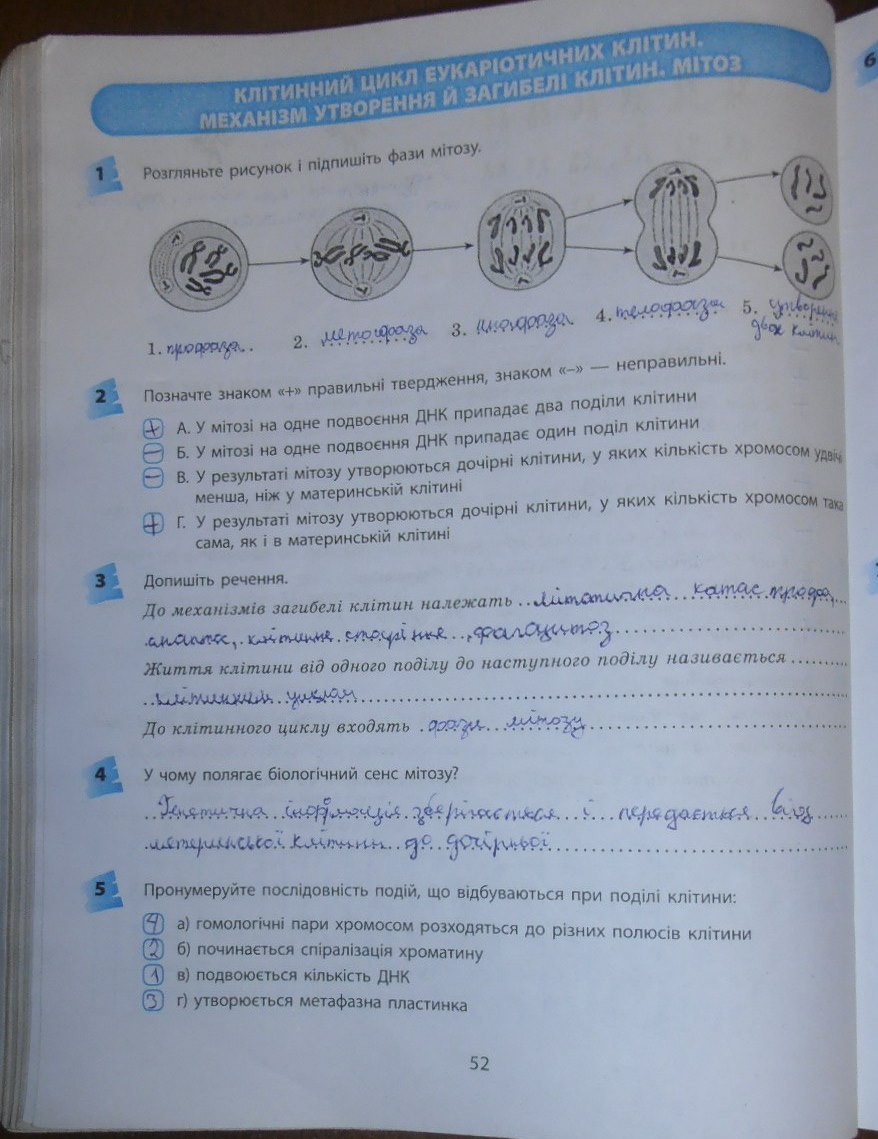 КЛІТИННИЙ ЦИКЛ ЕУКАРІОТИЧНИХ КЛІТИН.
МЕХАНІЗМ УТВОРЕННЯ Й ЗАГИБЕЛІ КЛІТИН. МІТОЗ
6
1 Розгляньте рисунок і підпишіть фази мітозу.
1. профаза. 2. метафаза 3. анафаза 4. телофаза 5. утворення
двох клітин
2 Позначте знаком «+» правильні твердження, знаком «–» — неправильні.
+ А. У мітозі на одне подвоєння ДНК припадає два поділи клітини
– Б. У мітозі на одне подвоєння ДНК припадає один поділ клітини
– В. У результаті мітозу утворюються дочірні клітини, у яких кількість хромосом удвічі
менша, ніж у материнській клітині
+ Г. У результаті мітозу утворюються дочірні клітини, у яких кількість хромосом така
сама, як і в материнській клітині
3 Допишіть речення.
До механізмів загибелі клітин належать мітотична катастрофа,
клітинне старіння, фагоцитоз
Життя клітини від одного поділу до наступного поділу називається
клітинним циклом
До клітинного циклу входять фази мітозу
4 У чому полягає біологічний сенс мітозу?
Генетична інформація зберігається і передається від
материнської клітини до дочірньої
5 Пронумеруйте послідовність подій, що відбуваються при поділі клітини:
4 а) гомологічні пари хромосом розходяться до різних полюсів клітини
2 б) починається спіралізація хроматину
1 в) подвоюється кількість ДНК
3 г) утворюється метафазна пластинка
52